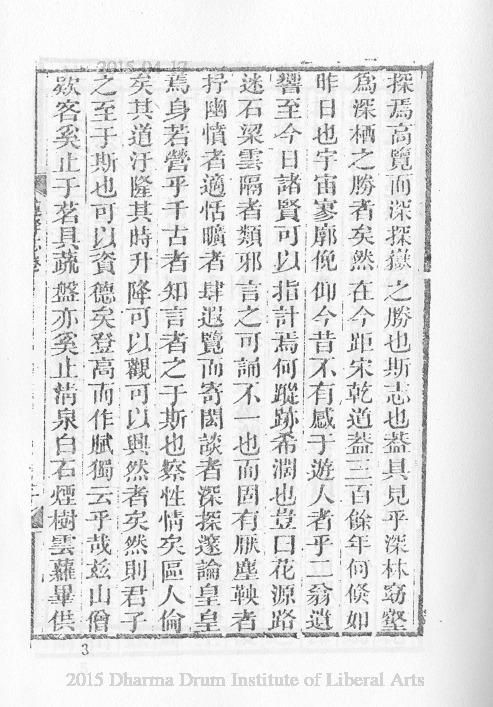 2015.04.17
探焉高覽而深探嶽之勝也斯志也葢具見乎深林窈壑
為深栖之勝者矣然在今距宋乾道葢三百餘年何倐如
昨日也宇宙寥廓俛仰今昔不有感于遊人者乎二翁遺
響至今日諸賢可以指計焉何蹤跡希濶也豈曰花源路
迷石梁雲隔者類邪言之可誦不一也而固有厭塵鞅者
抒幽憤者適恬曠者肆遐覽而寄閎談者深探邃論皇皇
焉身若營乎千古者知言者之于斯也察性情矣區人倫
矣其道汙隆其時升降可以觀可以興然者矣然則君子
之至于斯也可以資德矣登高而作賦獨云乎哉玆山僧
欵客奚止于茗具蔬盤亦奚止清泉白石煙樹雲蘿畢供
3
2015 Dharma Drum Institute of Liberal Arts